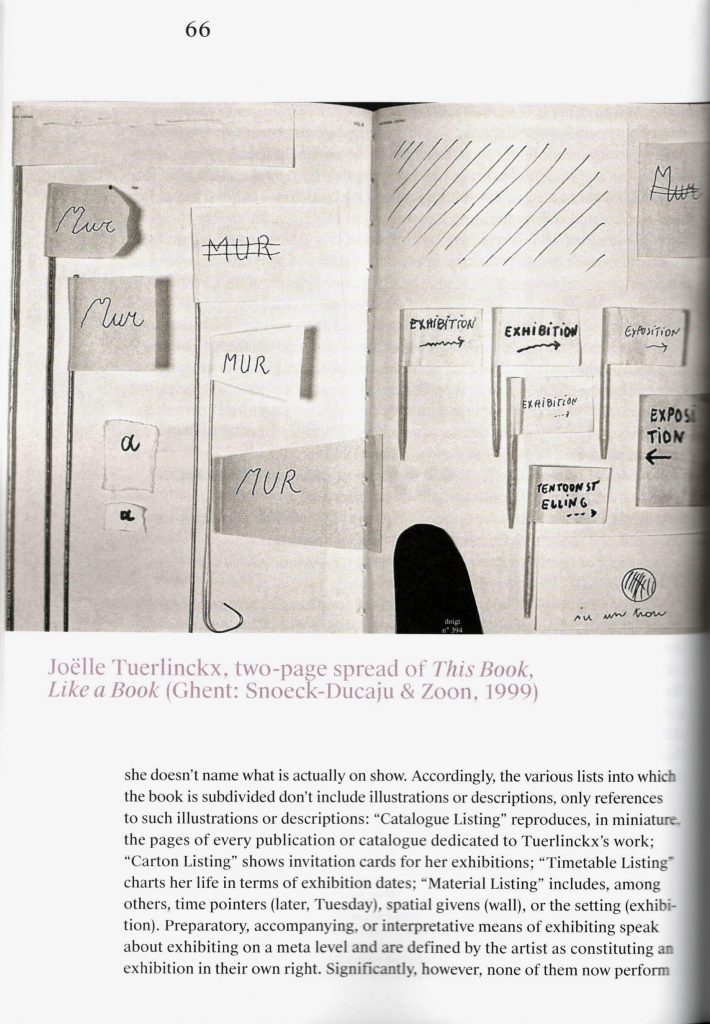 66
VOL.6
Mur
MUR
Mur
Mur
MUR
α
α
MUR
EXHIBITION
EXHIBITION
EXPOSITION
EXHIBITION
EXPOSI
TION
TENTOONST
ELLING
doigt
n° 394
Joëlle Tuerlinckx, two-page spread of This Book,
Like a Book (Ghent: Snoeck-Ducaju & Zoon, 1999)
she doesn’t name what is actually on show. Accordingly, the various lists into which
the book is subdivided don’t include illustrations or descriptions, only references
to such illustrations or descriptions: “Catalogue Listing” reproduces, in miniature,
the pages of every publication or catalogue dedicated to Tuerlinckx’s work;
“Carton Listing” shows invitation cards for her exhibitions; “Timetable Listing”
charts her life in terms of exhibition dates; “Material Listing” includes, among
others, time pointers (later, Tuesday), spatial givens (wall), or the setting (exhibi-
tion). Preparatory, accompanying, or interpretative means of exhibiting speak
about exhibiting on a meta level and are defined by the artist as constituting an
exhibition in their own right. Significantly, however, none of them now perform